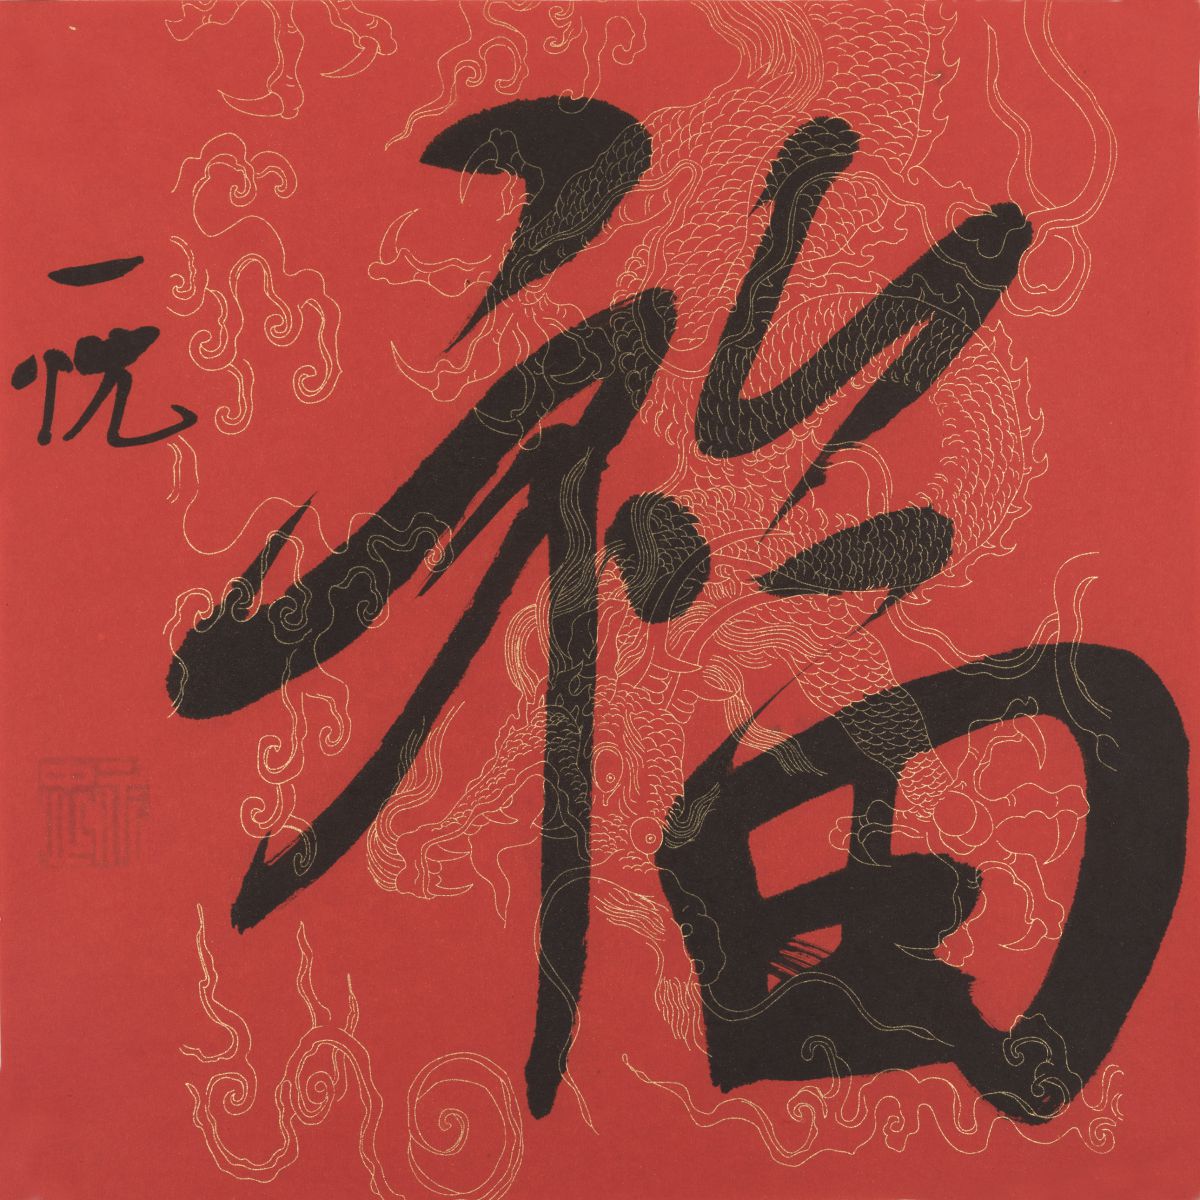 福
一悦